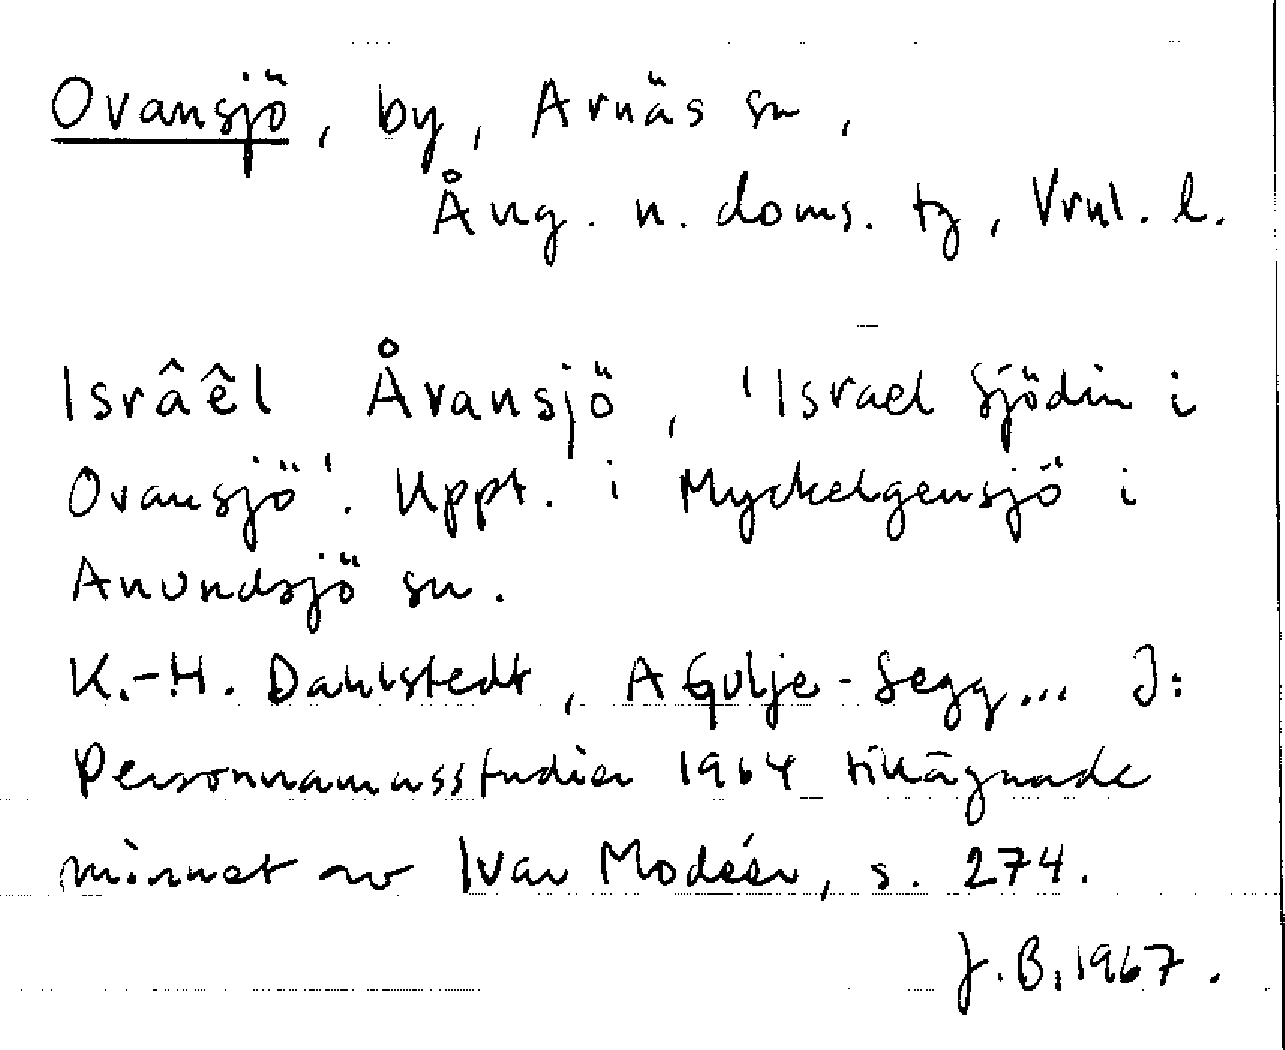 Ovansjö, by, Arnäs sn,
Ång. n. doms. tg, Vrnl. l.
Isrâêl Åvansjö, 'Israel Sjödin i
Ovansjö'. Uppt. i Myckelgensjö i
Anundsjö sn.
K.-H. Dahlstedt, A Gulje-Segg... I:
Personnamnsstudier 1964 tillägnade
minnet av Ivar Modéer, s. 274.
J.B. 1967.